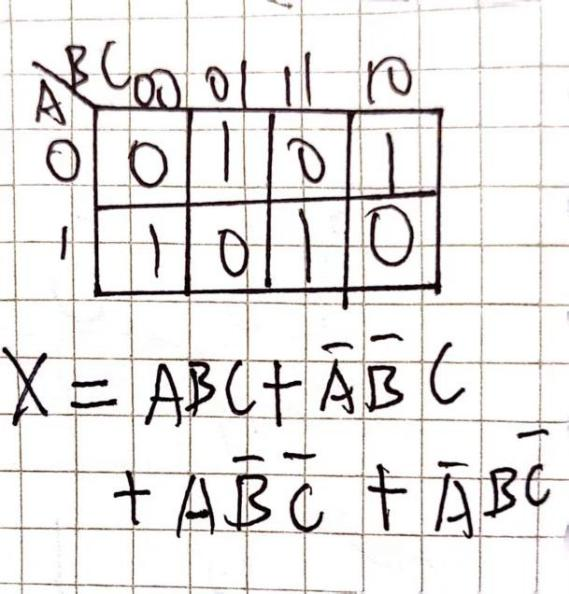 BC 00 01 11 10
A
0 0 1 0 1
1 1 0 1 0
X = ABC + A̅B̅C
+ AB̅C̅ + A̅BC̅